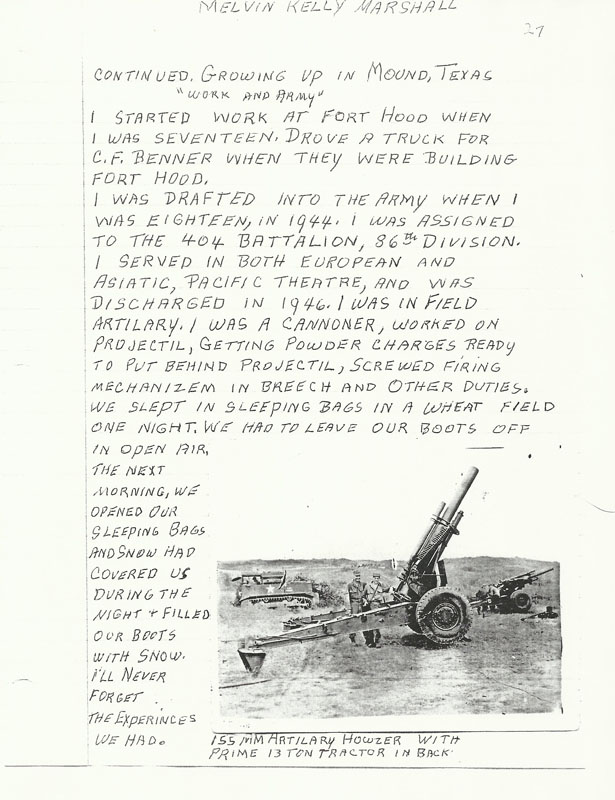 MELVIN KELLY MARSHALL
27
CONTINUED. GROWING UP IN MOUND, TEXAS
"WORK AND ARMY"
I STARTED WORK AT FORT HOOD WHEN
I WAS SEVENTEEN. DROVE A TRUCK FOR
C.F. BENNER WHEN THEY WERE BUILDING
FORT HOOD.
I WAS DRAFTED INTO THE ARMY WHEN I
WAS EIGHTEEN, IN 1944. I WAS ASSIGNED
TO THE 404 BATTALION, 86TH DIVISION.
I SERVED IN BOTH EUROPEAN AND
ASIATIC, PACIFIC THEATRE, AND WAS
DISCHARGED IN 1946. I WAS IN FIELD
ARTILARY. I WAS A CANNONER, WORKED ON
PROJECTIL, GETTING POWDER CHARGES READY
TO PUT BEHIND PROJECTIL, SCREWED FIRING
MECHANIZEM IN BREECH AND OTHER DUTIES.
WE SLEPT IN SLEEPING BAGS IN A WHEAT FIELD
ONE NIGHT. WE HAD TO LEAVE OUR BOOTS OFF
IN OPEN AIR.
THE NEXT
MORNING, WE
OPENED OUR
SLEEPING BAGS
AND SNOW HAD
COVERED US
DURING THE
NIGHT + FILLED
OUR BOOTS
WITH SNOW.
I'LL NEVER
FORGET
THE EXPERINCES
WE HAD.
155 MM ARTILARY HOWZER WITH
PRIME 13 TON TRACTOR IN BACK.